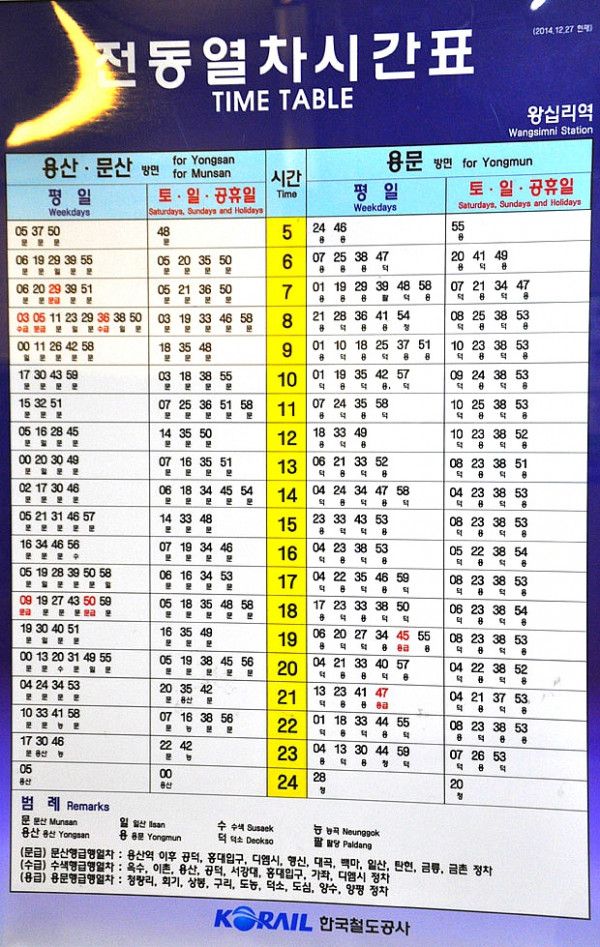 (2014.12.27 현재)
전동열차시간표
TIME TABLE
왕십리역
Wangsimni Station
용산·문산 방면 for Yongsan for Munsan
시간 Time
용문 방면 for Yongmun
평 일 Weekdays
토·일·공휴일 Saturdays, Sundays and Holidays
평 일 Weekdays
토·일·공휴일 Saturdays, Sundays and Holidays
05 37 50 48 5 24 46 55
06 19 29 39 55 05 20 35 50 6 07 25 38 47 20 41 49
06 20 29 39 51 05 21 36 50 7 01 19 29 39 48 58 07 21 34 47
03 05 11 23 29 36 38 50 03 19 33 46 58 8 21 28 36 41 54 08 25 38 53
00 11 26 42 58 18 35 48 9 01 10 18 25 37 51 10 23 38 53
17 30 43 59 03 18 38 55 10 01 19 35 42 57 09 24 38 53
15 32 51 07 25 36 51 58 11 07 24 35 58 10 25 38 53
05 16 28 45 14 35 50 12 18 33 49 10 23 38 52
00 20 30 49 07 16 35 51 13 06 21 33 52 08 23 38 51
02 17 30 46 06 18 34 45 54 14 04 24 34 47 58 04 23 38 53
05 21 31 46 57 14 33 48 15 23 33 43 53 08 23 38 53
16 34 46 56 07 19 34 46 16 04 23 38 53 05 22 38 54
05 19 28 39 50 58 06 16 34 53 17 04 22 35 46 59 08 23 38 53
09 19 27 43 50 59 05 18 35 48 58 18 17 23 33 38 50 06 23 38 54
19 30 40 51 16 35 49 19 06 20 27 34 45 55 08 23 38 53
00 13 20 31 49 55 05 19 38 45 56 20 04 21 33 40 57 04 22 38 52
04 24 34 53 20 35 42 21 13 23 41 47 04 21 37 53
10 33 41 58 07 16 38 56 22 01 18 33 44 55 08 23 38 53
17 30 46 22 42 23 04 13 30 44 59 07 26 53
05 00 24 28 20
범 례 Remarks
문 문산 Munsan 일 일산 Ilsan 수 수색 Susaek 능 능곡 Neunggok
용산 용산 Yongsan 용 용문 Yongmun 덕 덕소 Deokso 팔 팔당 Paldang
(문급) 문산행급행열차 : 용산역 이후 공덕, 홍대입구, 디엠시, 행신, 대곡, 백마, 일산, 탄현, 금릉, 금촌 정차
(수급) 수색행급행열차 : 옥수, 이촌, 용산, 공덕, 서강대, 홍대입구, 가좌, 디엠시 정차
(용급) 용문행급행열차 : 청량리, 회기, 상봉, 구리, 도농, 덕소, 도심, 양수, 양평 정차
KORAIL 한국철도공사